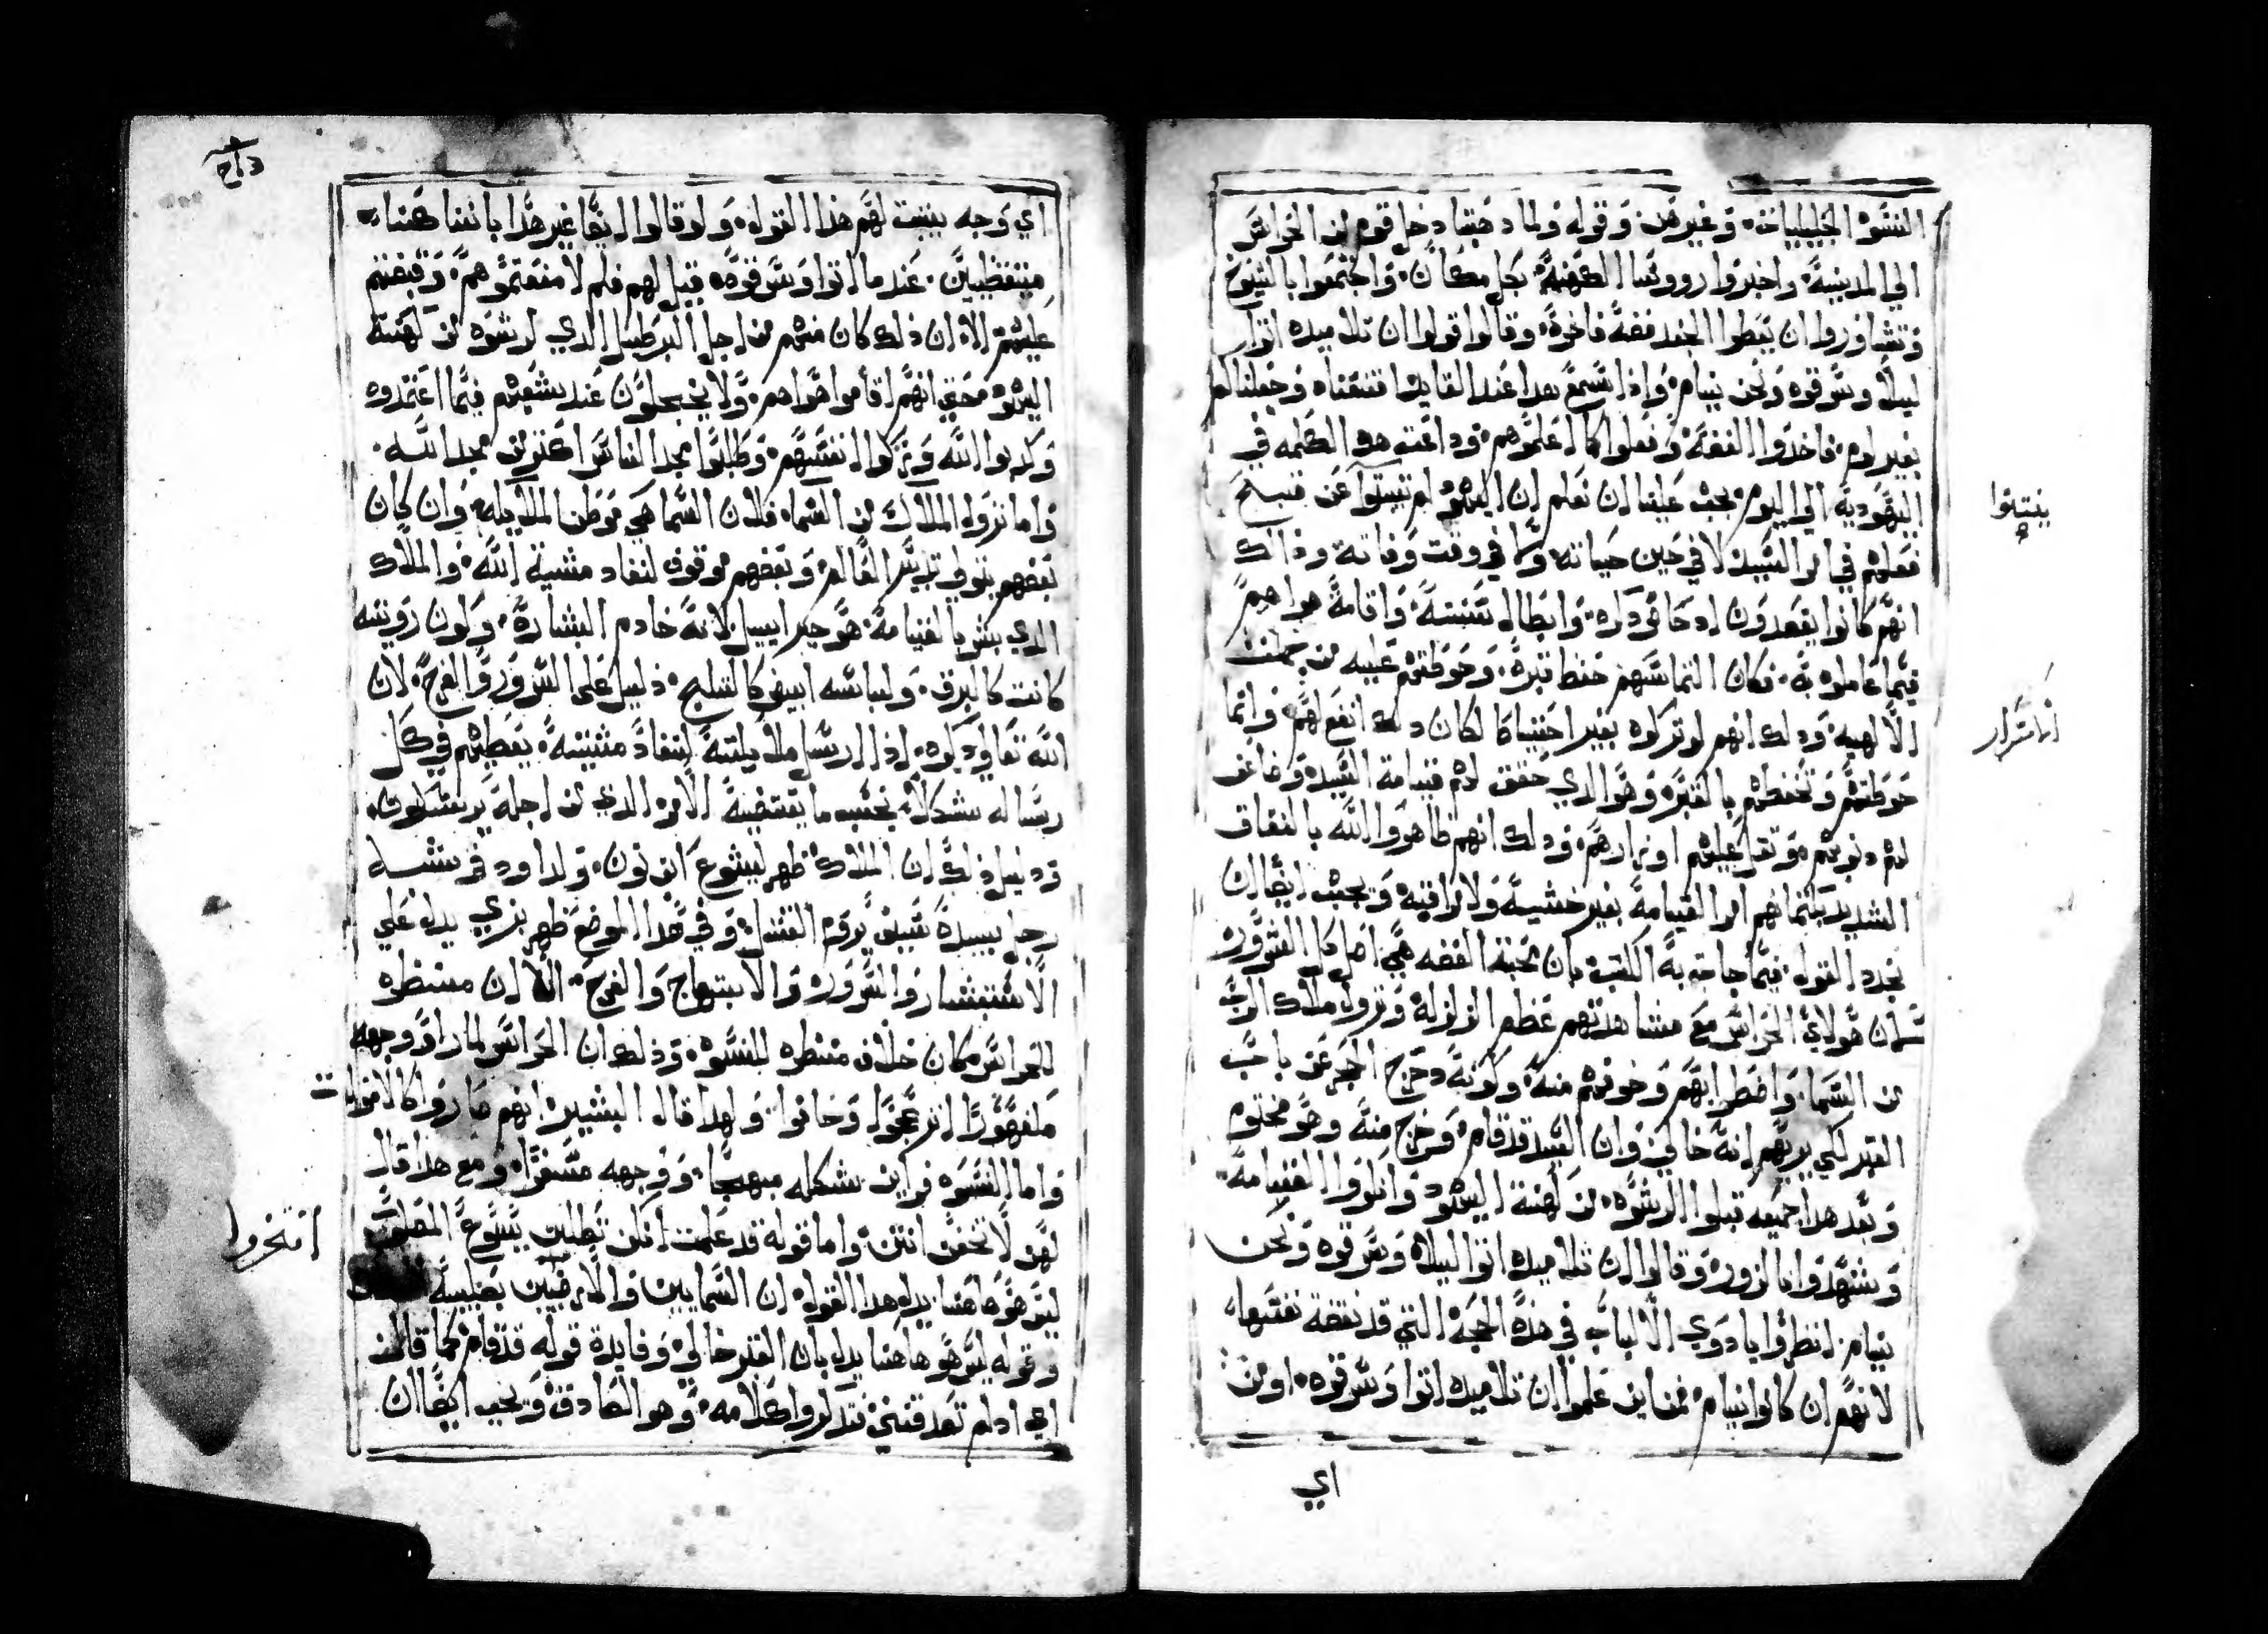 النسوه الجليليات، وغيرهن وقوله ولما دهبتا دخل قوم من الحراس
الي المدينة، واخبروا رووسا الكهنة، بكل مكان، واجتمعوا بالشيوخ
وتشاوروا ان يعطوا الجند فضة فاخرة، وقالوا قولوا ان تلاميده اتوا
ليلاً وسرقوه ونحن نيام، واذا سمع هدا عند القايد اقنعناه وجعلنالم
بغير لوم، فاخدوا الفضة، وفعلوا كما اعلموهم، وداعت هده الكلمه في
اليهودية، الي اليوم، يجب علينا ان نعلم ان اليهود لم ينتهوا عن قبيح
فعلهم في امر السيد، لا في حين حياته، ولا في وقت وفاته ودالك
انهم كانوا يقصدون ادحاض دكره، وابطال تعبسة، واقامة هواهم
فيما عاملوه به، فكان التماسهم حفظ قبره، وحوطتهم عليه من
الالهيه، ودلك انهم لو تركوه بغير احتياط لكان دلك انفع لهم، وانما
حوطتهم وتحفظهم بالقبر، وهو الدي حقق لهم قيامة السيد، وضاعف
لهم دنوبهم، وثقل عليهم اوزارهم، ودلك انهم ظاهروا الله بالنفاق
الشديد بكتمانهم امر القيامة بغير خشية ولا مراقبة، ويجب ايضا ان
نجدد القول، فيما جات به الكتب، بان محبة الفضه هي اصل كل الشرور،
لان هولاي الحراس مع مشاهدتهم عظم الزلزلة، ونزول ملاك الرب
من السما، واضطرابهم وخوفهم منه، وكونه دحرج الحجر عن باب
القبر لكي يريهم انه خالي، وان السيد قد قام، وخرج منه وهو مختوم
وبعد هدا جميعه قبلوا الرشوه، من كهنة اليهود، وانكروا القيامة،
وشهدوا بالزور، وقالوا ان تلاميده اتوا ليلا، وسرقوه ونحن
نيام، انظروا يا دوي الالباب في هده الحجة، التي قد نقضة نفسها،
لانهم ان كانوا نيام، فمن اين علموا ان تلاميده اتوا وسرقوه، او من
اي
ينتهوا
اي وجه يثبت لهم هذا القول، ولو قالوا ايضا غير هدا باننا كنا
متيقظين، عندما اتوا وسرقوه، قيل لهم فلم لا منعتموهم، وقبضتم
عليهم، الا ان ذلك كان منهم من اجل البرطيل الدي ارتشوه من كهنة
اليهود، محق انهم اقاموا هواهم، ولا يخجلون عند بشعهم فيما اعتمدوه
وكدبوا الله وتركوا انفسهم، وطلبوا مجد الناس اكتر من مجد الله،
واما نزول الملاك من السما، فلان السما هي موطن الملايكه، وان كان
بعضهم يتولي تدبير العالم، وبعضهم موقوف لنفاد مشية الله، والملاك
الدي بشر بالقيامة، هو جبراييل لانه خادم البشارة، وكون رويته
كانت كالبرق، ولباسه ابيض كالثلج، دليل على السرور والفرح، لان
الله تعالى دكره، ادا ارسل ملايكته لنفاد مشيته، يعطيهم في كل
رساله شكلا، بحسب ما يقتضيه الامر الدي من اجله يرسلون،
ودليل ذلك ان الملاك ظهر ليشوع ابن نون، ولداود في شبه
رجل بيده سيف يروم القتل، وفي هدا الموضع ظهر بزي يدل علي
الاستبشار والسرور، والابتهاج والفرح، الا ان منظره
للحراس كان خلاف منظره للنسوه، وذلك ان الحراس لما راوا وجهه
انزعجوا وخافوا، ولهدا قال البشير، انهم صاروا كالاموات
واما النسوه فراين شكله مبهجا، ووجهه مسفرا، ومع هدا قال
لهن لا تخفن انتن، واما قوله قد علمت انكن تطلبن يسوع المصلوب
ليس هو هاهنا، يدل هدا القول، ان السماييين والارضيين بصليبه
وقوله ليس هو هاهنا يدل بان القبر خالي، وفايدة قوله قد قام كما قال
اي ادلم تصدقنني فتدكروا كلامه، وهو الصادق، ويجب ايضا ان